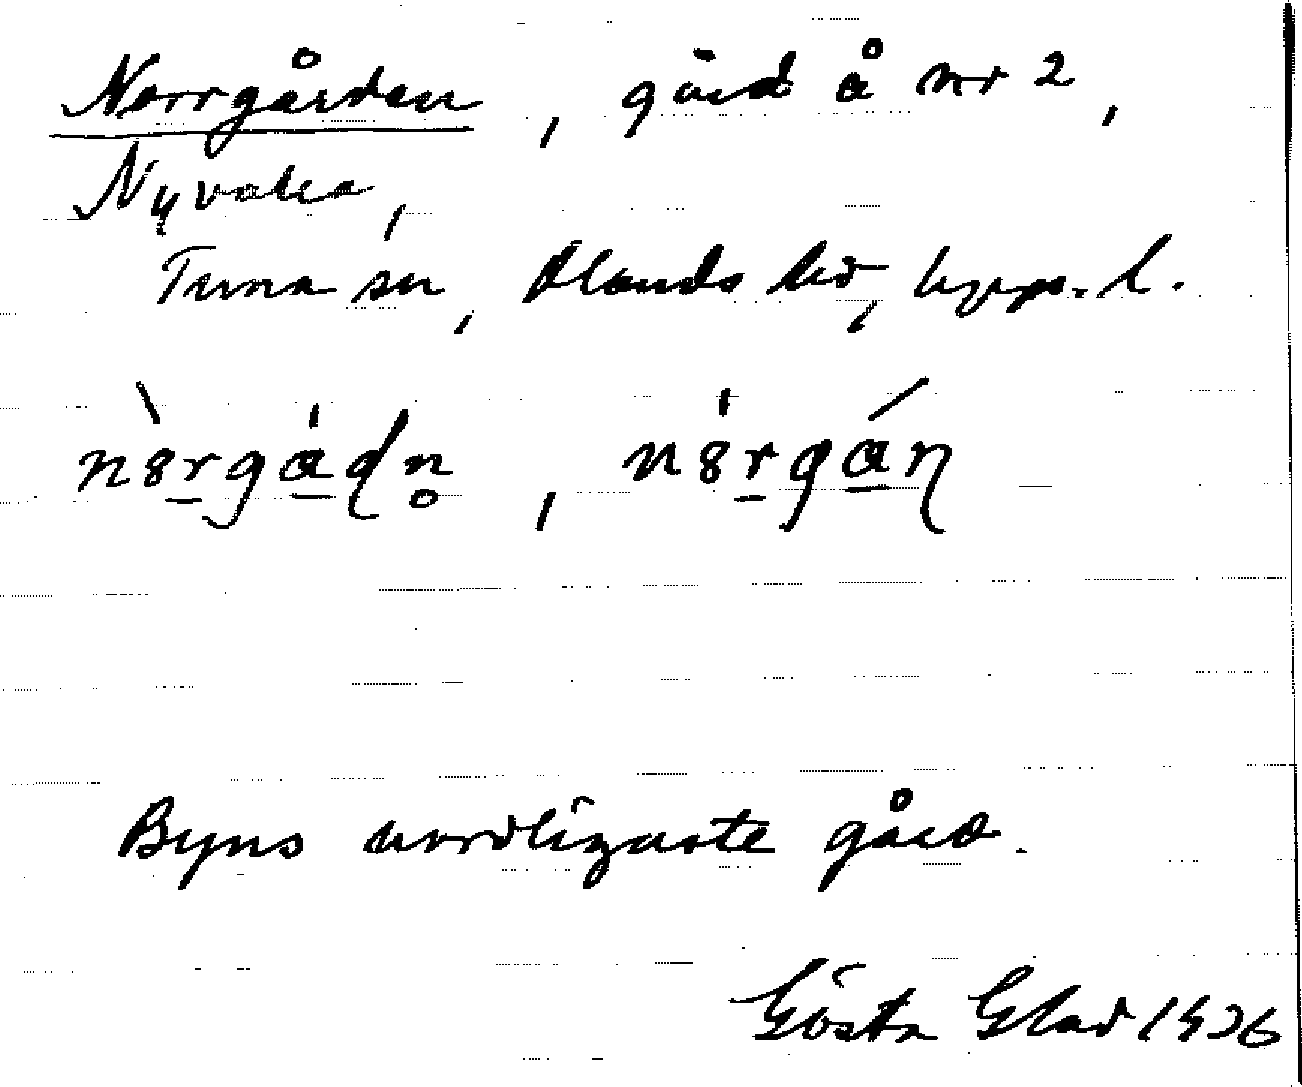 Norrgården, gård å nr 2,
Nyvalla,
Tuna sn, Olands hd, Upps. l.
nòrgá̱dn̥, nórgá̱ɳ
Byns nordligaste gård.
Gösta Glad 1926